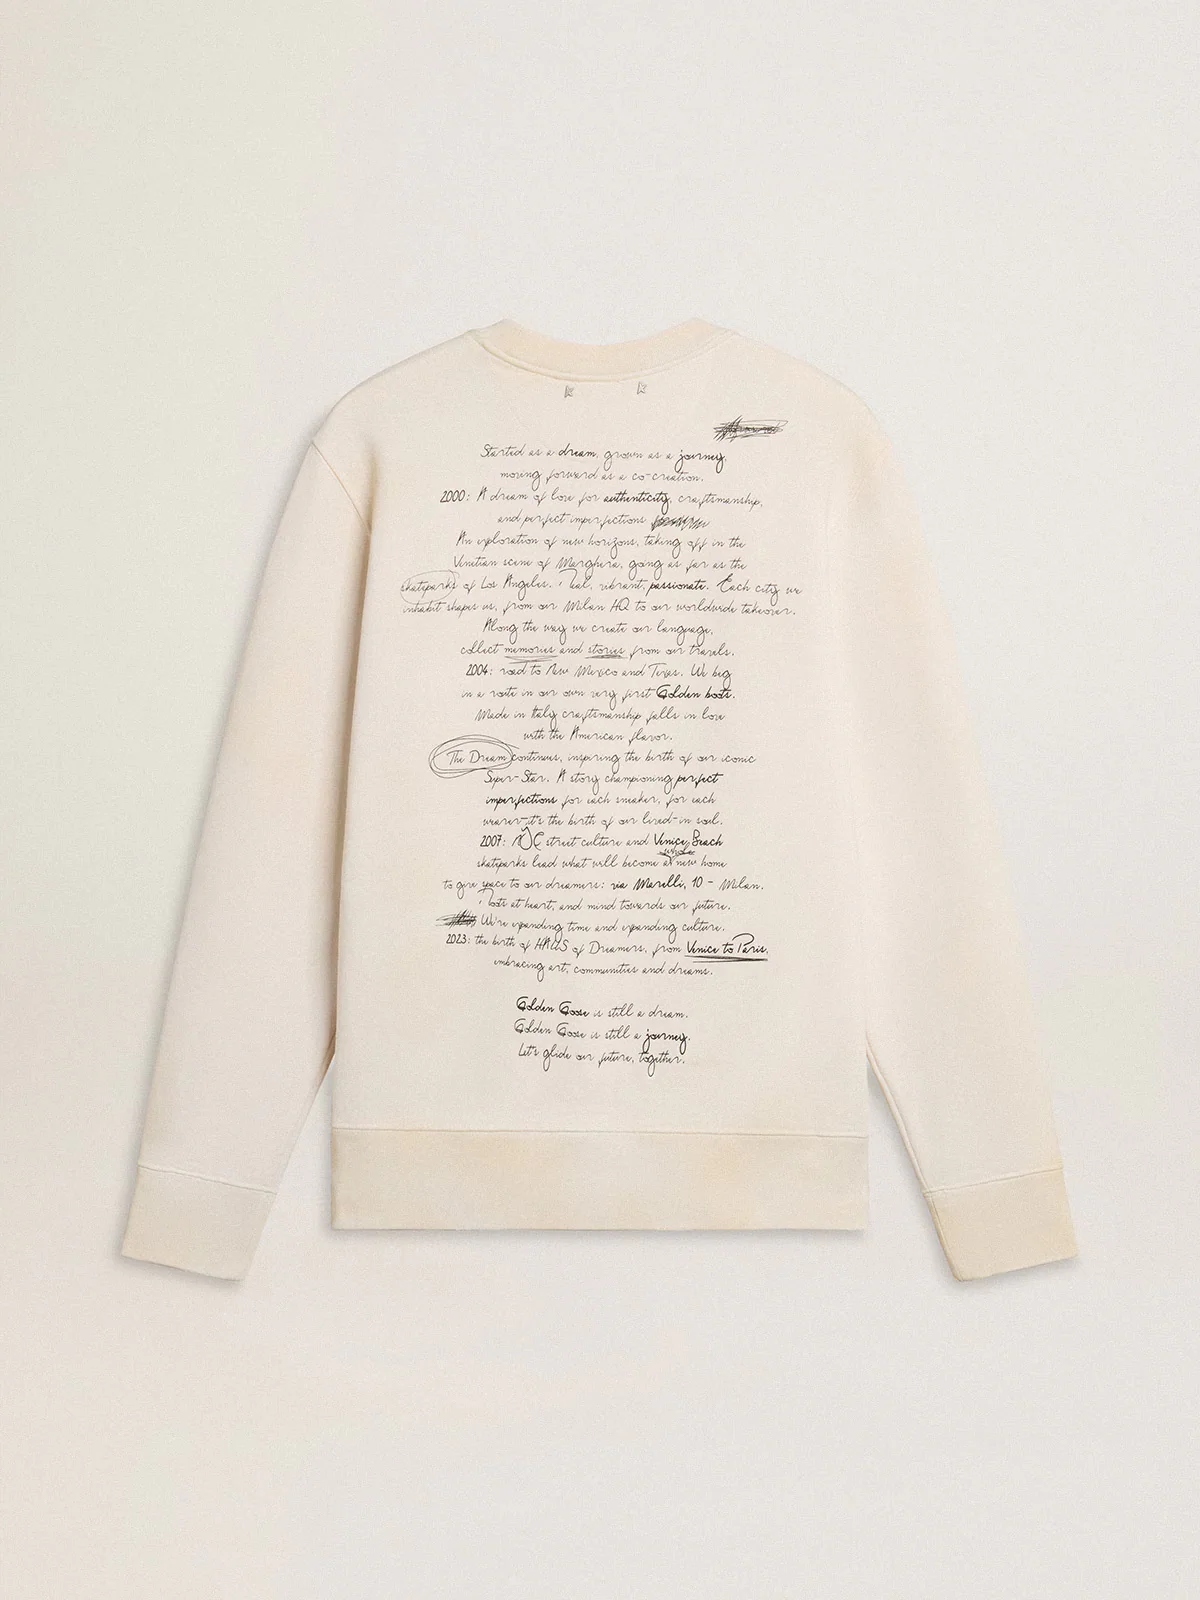 Started as a dream, grown as a journey,
moving forward as a co-creation.
2000: A dream of love for authenticity, craftsmanship,
and perfect imperfections
An exploration of new horizons, taking off in the
Venitian scene of Marghera, going as far as the
skateparks of Los Angeles. Real, vibrant, passionate. Each city we
inhabit shapes us, from our Milan HQ to our worldwide takeover.
Along the way we create our language,
collect memories and stories from our travels.
2004: road to New Mexico and Texas. We beg
in a route in our own very first Golden boots.
Made in Italy craftsmanship falls in love
with the American flavor.
The Dream continues, inspiring the birth of our iconic
Super-Star. A story championing perfect
imperfections for each sneaker, for each
wearer-it's the birth of our lived-in soul.
2007: NYC street culture and Venice Beach
skateparks lead what will become a whole new home
to give space to our dreamers: via Morelli, 10 - Milan.
Roots at heart, and mind towards our future.
We're expanding time and expanding culture.
2023: the birth of HAUS of Dreamers, from Venice to Paris,
embracing art, communities and dreams.
Golden Goose is still a dream.
Golden Goose is still a journey.
Let's glide our future, together.